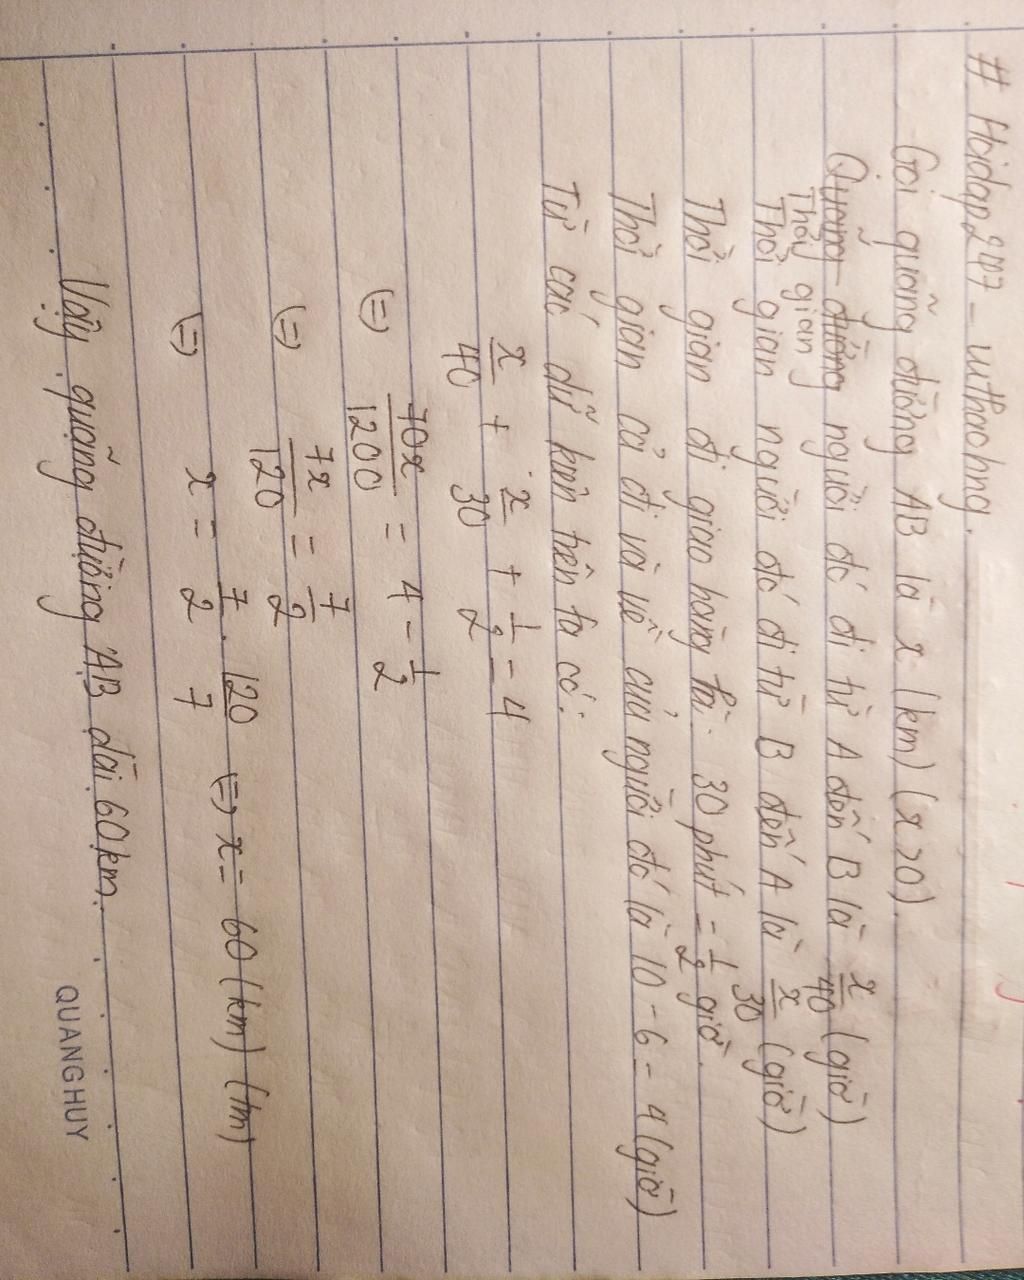 # Hoidap247 - uthaohng.
Gọi quãng đường AB là x (km) (x>0).
Thời gian
Quãng đường người đó đi từ A đến B là x/40 (giờ)
Thời gian người đó đi từ B đến A là x/30 (giờ)
Thời gian đi giao hàng là: 30 phút = 1/2 giờ.
Thời gian cả đi và về của người đó là 10 - 6 = 4 (giờ)
Từ các dữ kiện trên ta có:
x/40 + x/30 + 1/2 = 4
(=) 70x/1200 = 4 - 1/2
(=) 7x/120 = 7/2
(=) x = 7/2 . 120/7 (=) x = 60 (km) (tm)
Vậy quãng đường AB dài 60km.
QUANGHUY